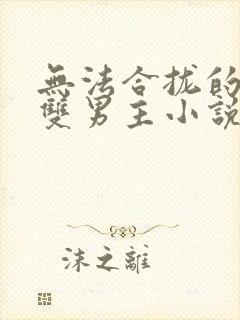 無法合拢的
雙男主小說
沫之離